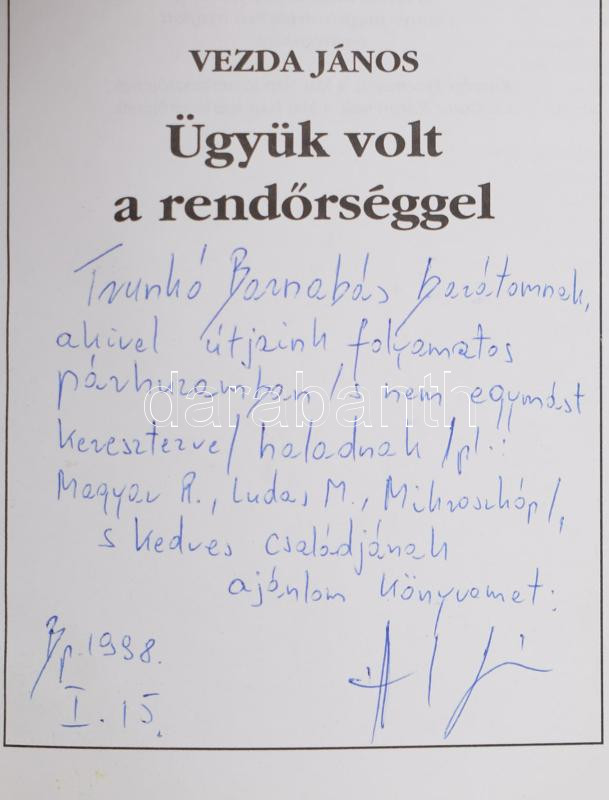 VEZDA JÁNOS
Ügyük volt
a rendőrséggel
Trunkó Barnabás barátomnak,
akivel útjaink folyamatos
párhuzamban /s nem egymást
keresztezve/ haladnak /pl.:
Magyar R., Ludas M., Mikroszkóp/,
s kedves családjának
ajánlom könyvemet:
Bp. 1998.
I. 15.
darabanth